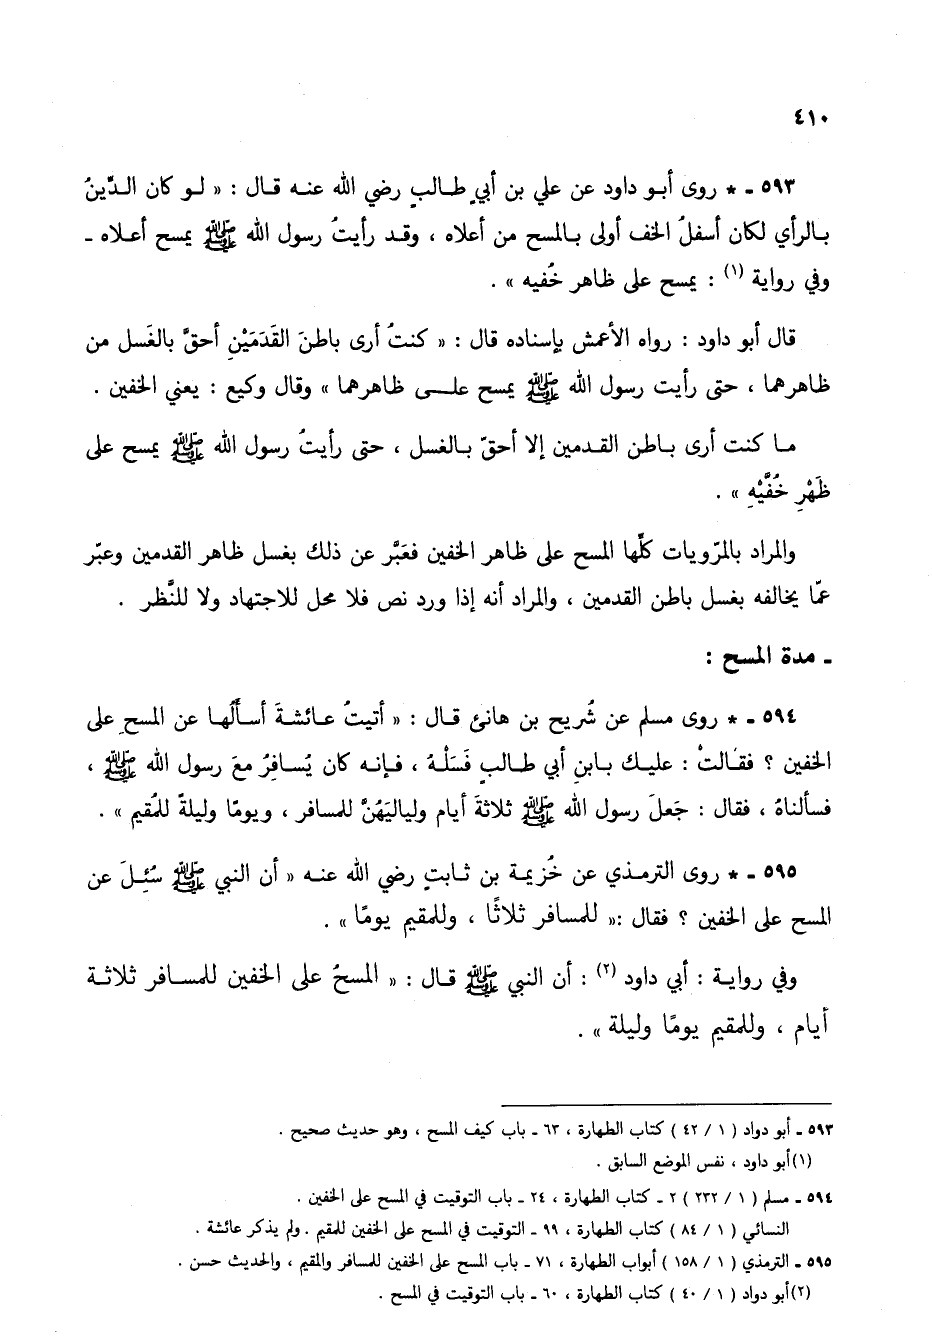 ٤١٠
٥٩٣ ـ * روى أبو داود عن علي بن أبي طالبٍ رضي الله عنه قال : « لو كان الدِّينُ
بالرأي لكان أسفلُ الخف أولى بالمسح من أعلاه ، وقد رأيتُ رسول الله ﷺ يمسح أعلاه ـ
وفي رواية (١) : يمسح على ظاهر خُفيه » .
قال أبو داود : رواه الأعمش بإسناده قال : « كنتُ أرى باطنَ القَدَمَيْنِ أحقَّ بالغَسل من
ظاهرهما ، حتى رأيت رسول الله ﷺ يمسح علـى ظاهرهما » وقال وكيع : يعني الخفين .
ما كنت أرى باطن القدمين إلا أحقّ بالغسل ، حتى رأيتُ رسول الله ﷺ يمسح على
ظَهْرِ خُفَّيْهِ » .
والمراد بالمرّويات كلِّها المسح على ظاهر الخفين فعَبَّر عن ذلك بغسل ظاهر القدمين وعبّر
عمّا يخالفه بغسل باطن القدمين ، والمراد أنه إذا ورد نص فلا محل للاجتهاد ولا للنَّظر .
ـ مدة المسح :
٥٩٤ ـ * روى مسلم عن شُريح بن هانئ قال : « أتيتُ عائشةَ أسألُها عن المسحِ على
الخفين ؟ فقالتْ : عليك بابنِ أبي طالبٍ فَسَلْهُ ، فإنه كان يُسافِرُ معَ رسول الله ﷺ ،
فسألناهُ ، فقال : جَعلَ رسول الله ﷺ ثلاثةَ أيام ولياليَهُنَّ للمسافر ، ويومًا وليلةً للمُقيم » .
٥٩٥ ـ * روى الترمذي عن خُزيمة بن ثابتٍ رضي الله عنه « أن النبي ﷺ سُئِلَ عن
المسح على الخفين ؟ فقال :« للمسافر ثلاثًا ، وللمقيم يومًا » .
وفي رواية : أبي داود (٢) : أن النبي ﷺ قال : « المسحُ على الخفين للمسافر ثلاثة
أيام ، وللمقيم يومًا وليلة » .
٥٩٣ ـ أبو دواد ( ١ / ٤٢ ) كتاب الطهارة ، ٦٣ ـ باب كيف المسح ، وهو حديث صحيح .
(١) أبو داود ، نفس الموضع السابق .
٥٩٤ ـ مسلم ( ١ / ٢٣٢ ) ٢ ـ كتاب الطهارة ، ٢٤ ـ باب التوقيت في المسح على الخفين .
النسائي ( ١ / ٨٤ ) كتاب الطهارة ، ٩٩ ـ التوقيت في المسح على الخفين للمقيم . ولم يذكر عائشة .
٥٩٥ ـ الترمذي ( ١ / ١٥٨ ) أبواب الطهارة ، ٧١ ـ باب المسح على الخفين للمسافر والمقيم ، والحديث حسن .
(٢) أبو دواد ( ١ / ٤٠ ) كتاب الطهارة ، ٦٠ ـ باب التوقيت في المسح .